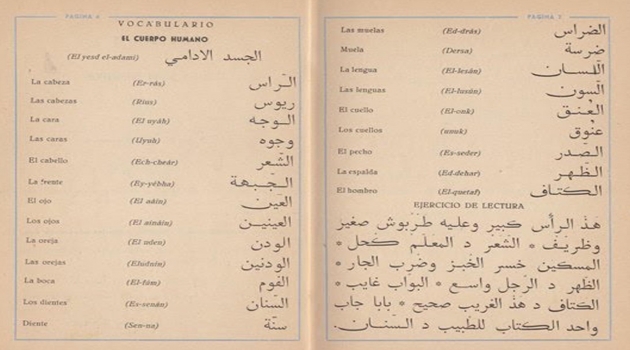 PAGINA 6
VOCABULARIO
EL CUERPO HUMANO
(El yesd el-adami) الجسد الادامي
La cabeza (Er-rás) الـرّاس
Las cabezas (Rius) ريوس
La cara (El uyáh) الـوجه
Las caras (Uyuh) وجوه
El cabello (Ech-cheár) الشّعر
La frente (Ey-yébha) الـجّبـهة
El ojo (El aáin) العين
Los ojos (El aináin) العينيـن
La oreja (El uden) الودن
Las orejas (Eludnin) الودنين
La boca (El-fúm) الفوم
Los dientes (Es-senán) السّنان
Diente (Sen-na) سنّة
PAGINA 7
Las muelas (Ed-drás) الضراس
Muela (Dersa) ضرسة
La lengua (El-lesán) اللّسـان
Las lenguas (El-lusún) السون
El cuello (El-onk) العُنـق
Los cuellos (unuk) عنُوق
El pecho (Es-seder) الـصّدر
La espalda (Ed-dehar) الـظّهر
El hombro (El-quetaf) الكتـاف
EJERCICIO DE LECTURA
هـذ الـرأس كبير وعليـه طـرّبوش صغير
وظريـف * الشعَر د المعلـم كحل *
المسكين خسر الخبـز وضرب الجار *
الظهر د الرجل واسـع * البواب غايب *
الكتاف د هذ الغريب صحيح * بابا جاب
واحد الكتاب للطبيب د السّنـان.